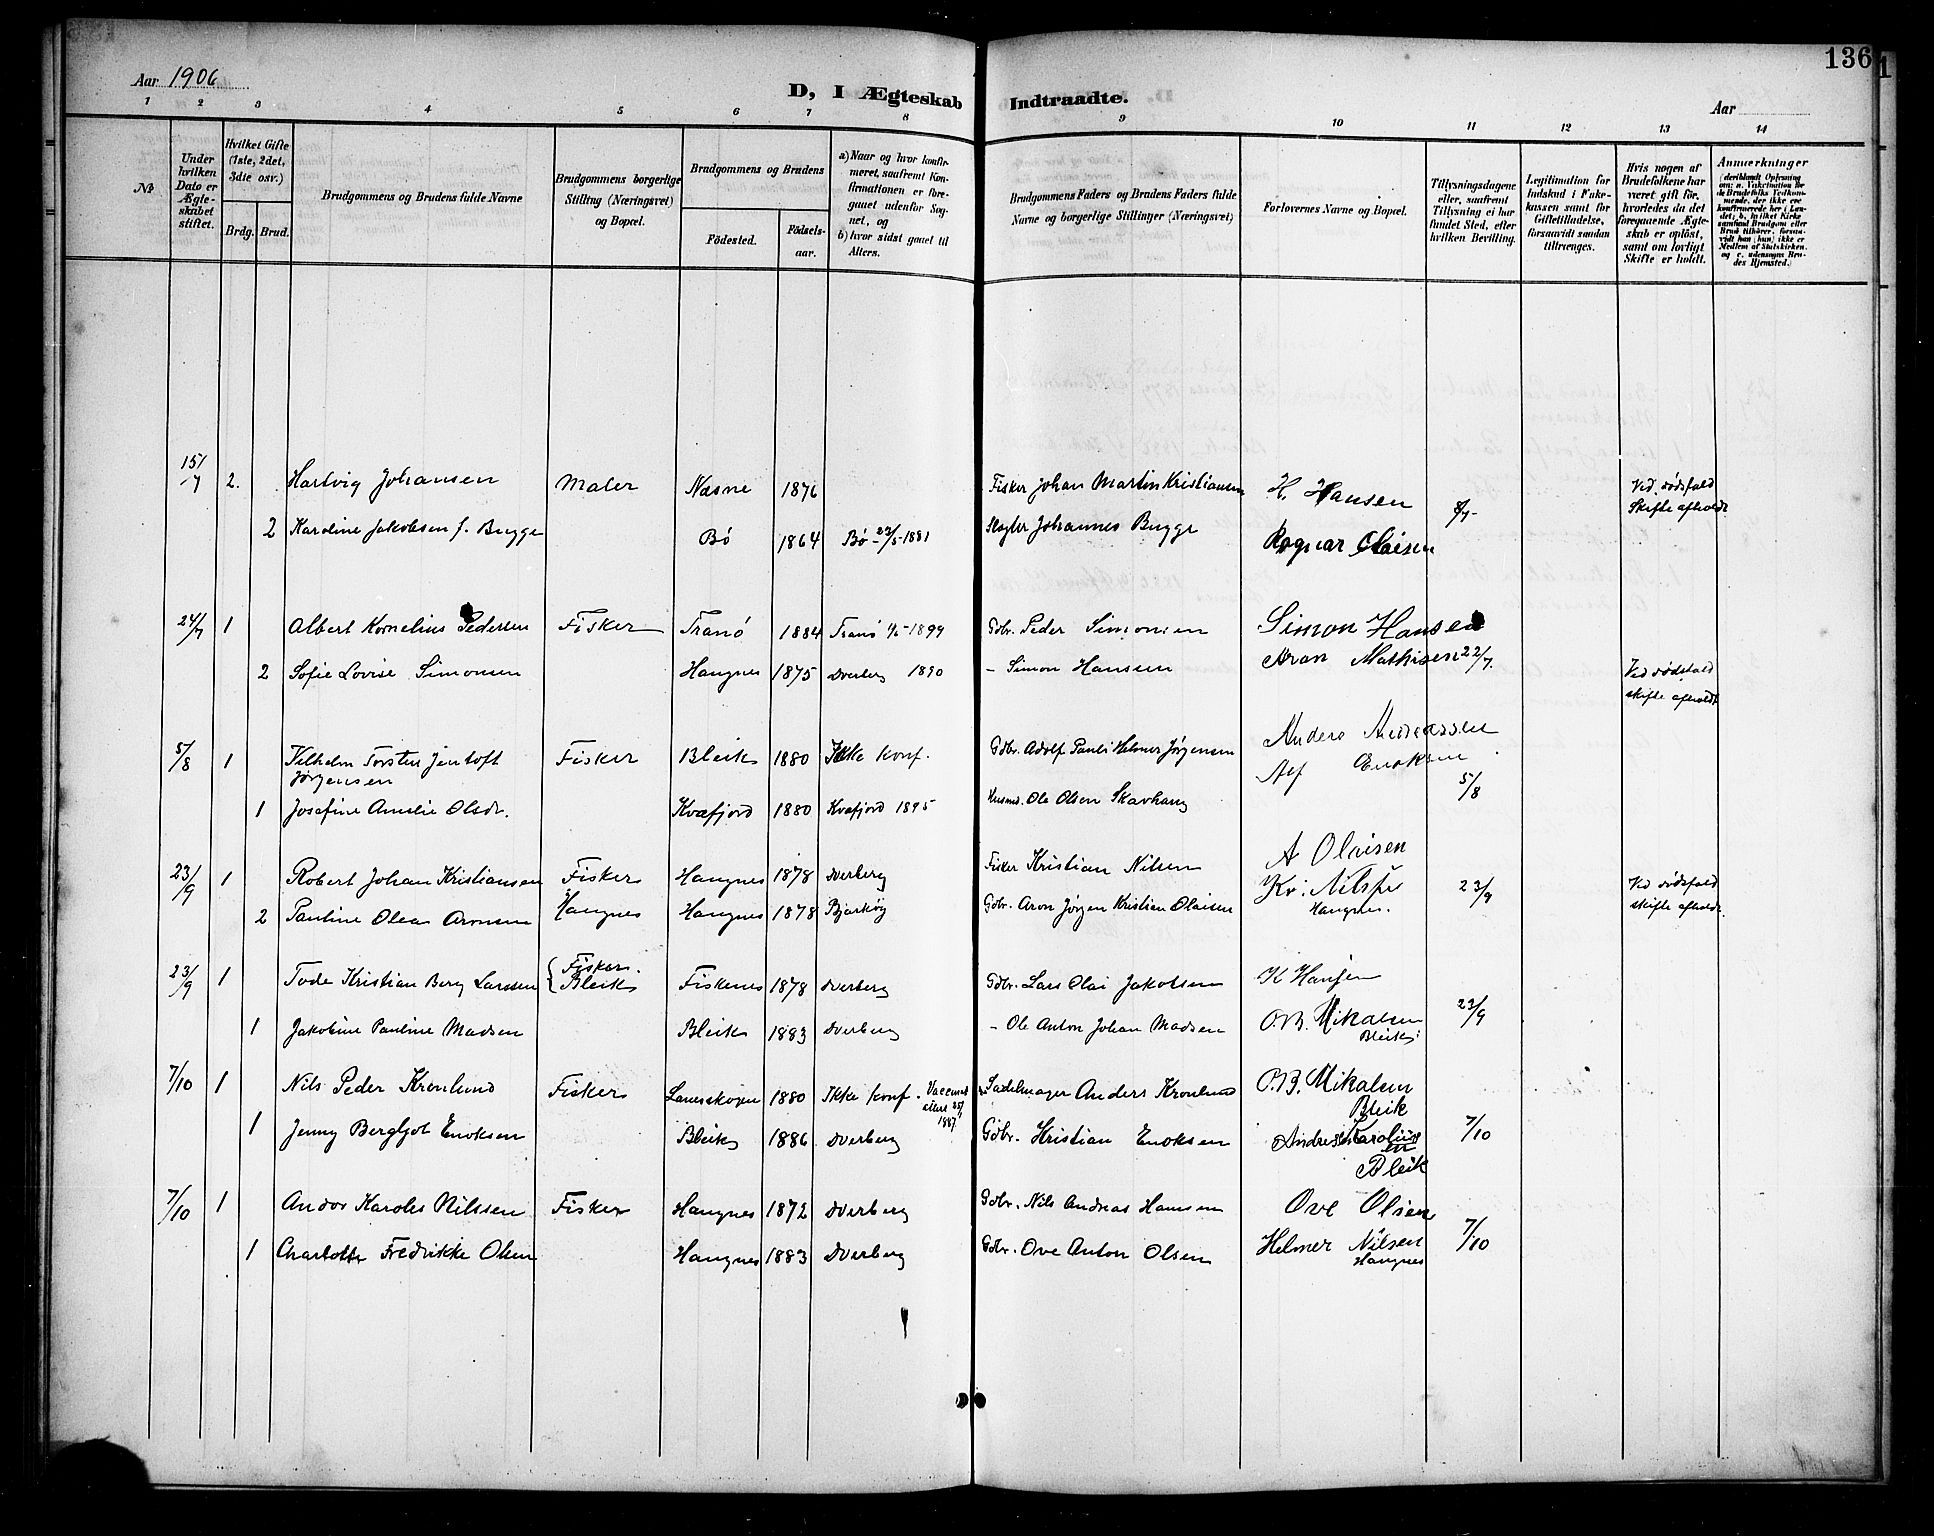 136
Aar 1906
D, I Ægteskab Indtraadte.
Aar
1 2 3 4 5 6 7 8 9 10 11 12 13 14
No
Under hvilken Dato er Ægteskabet stiftet.
Hvilket Gifte (1ste, 2det, 3die osv.)
Brdg. Brud.
Brudgommens og Brudens fulde Navne
Brudgommens borgerlige Stilling (Næringsvei) og Bopæl.
Brudgommens og Brudens
Födested. Födselsaar.
a) Naar og hvor konfirmeret, saafremt Konfirmationen er foregaaet udenfor Sognet, og
b) hvor sidst gaaet til Alters.
Brudgommens Faders og Brudens Faders fulde Navne og borgerlige Stillinger (Næringsvei)
Forlovernes Navne og Bopæl.
Tillysningsdagene eller, saafremt Tillysning ei har fundet Sted, efter hvilken Bevilling.
Legitimation for Indskud i Enkekassen samt for Giftetilladelse, forsaavidt saadan tiltrænges.
Hvis nogen af Brudefolkene har været gift för, hvorledes da det foregaaende Ægteskab er oplöst, samt om lovligt Skifte er holdt.
Anmærkninger
15/7 2. Hartvig Johansen Maler Næsne 1876 Fisker Johan Martin Kristiansen H. Hansen 8/7- Ved dødsfald Skifte afholdt
2 Karoline Jakobsen f. Bugge Bø 1864 Bø 23/5-1881 Johannes Bugge Ragnar Olaisen
24/7 1 Albert Kornelius Pedersen Fisker Tranø 1884 Tranø 1899 Gdbr. Peder Simonsen Simon Hansen
2 Sofie Lovise Simonsen Haugnes 1875 Dverberg 1890 - Simon Hanssen Aron Mathisen 22/7. Ved dødsfald skifte afholdt
5/8 1 Vilhelm Torsten Jentoft Jørgensen Fisker Bleik 1880 Ikke konf. Gdbr. Adolf Pauli Helmer Jørgensen Anders Andreassen
Enoksen 5/8
1 Josefine Amelie Olsdr. Kvæfjord 1880 Kvæfjord 1895 Husmd. Ole Olsen Skavhaug
23/9 1 Robert Johan Kristiansen Fisker Haugnes 1878 Dverberg Fisker Kristian Nilsen A Olaisen
2 Pauline Olea Aronsen Haugnes Haugnes 1878 Bjarkøy Gdbr. Aron Jørgen Kristian Olaisen Kr. Nilsen Haugnes. 23/9 Ved dødsfald skifte afholdt
23/9 1 Tode Kristian Berg Larssen Fisker. Bleik Fiskenes 1878 Dverberg Gdbr. Lars Olai Jakobsen K Hansen
1 Jakobine Pauline Madsen Bleik 1883 Dverberg - Ole Anton Johan Madsen O.B. Mikalsen Bleik 23/9
7/10 1 Nils Peder Kronlund Fisker 1880 Ikke konf. 1887 Sadelmager Anders Kronlund O.B. Mikalsen Bleik
1 Jenny Bergljot Enoksen Bleik 1886 Dverberg Gdbr. Kristian Enoksen Andreas Karoliussen Bleik 7/10
7/10 1 Andor Karoles Nilssen Fisker Haugnes 1872 Dverberg Gdbr. Nils Andreas Hansen Ove Olsen
1 Charlotte Fredrikke Olsen Haugnes 1883 Dverberg Gdbr. Ove Anton Olsen Helmer Nilsen Haugnes 7/10